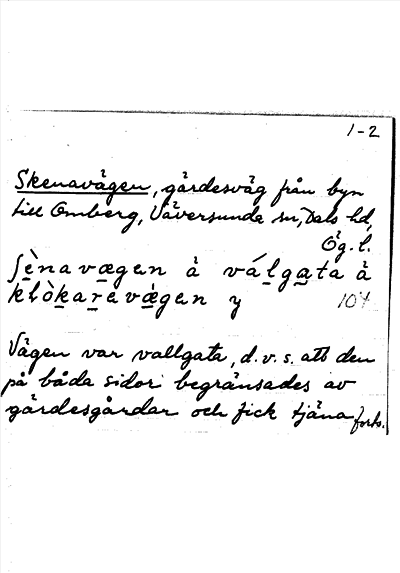 1-2
Skenavägen, gärdesväg från byn
till Omberg, Väversunda sn, Dals hd,
Ög. l.
ʃènavægen åválgata å
klòkarevægen y 104
Vägen var vallgata, d.v.s. att den
på båda sidor begränsades av
gärdesgårdar och fick tjäna forts.